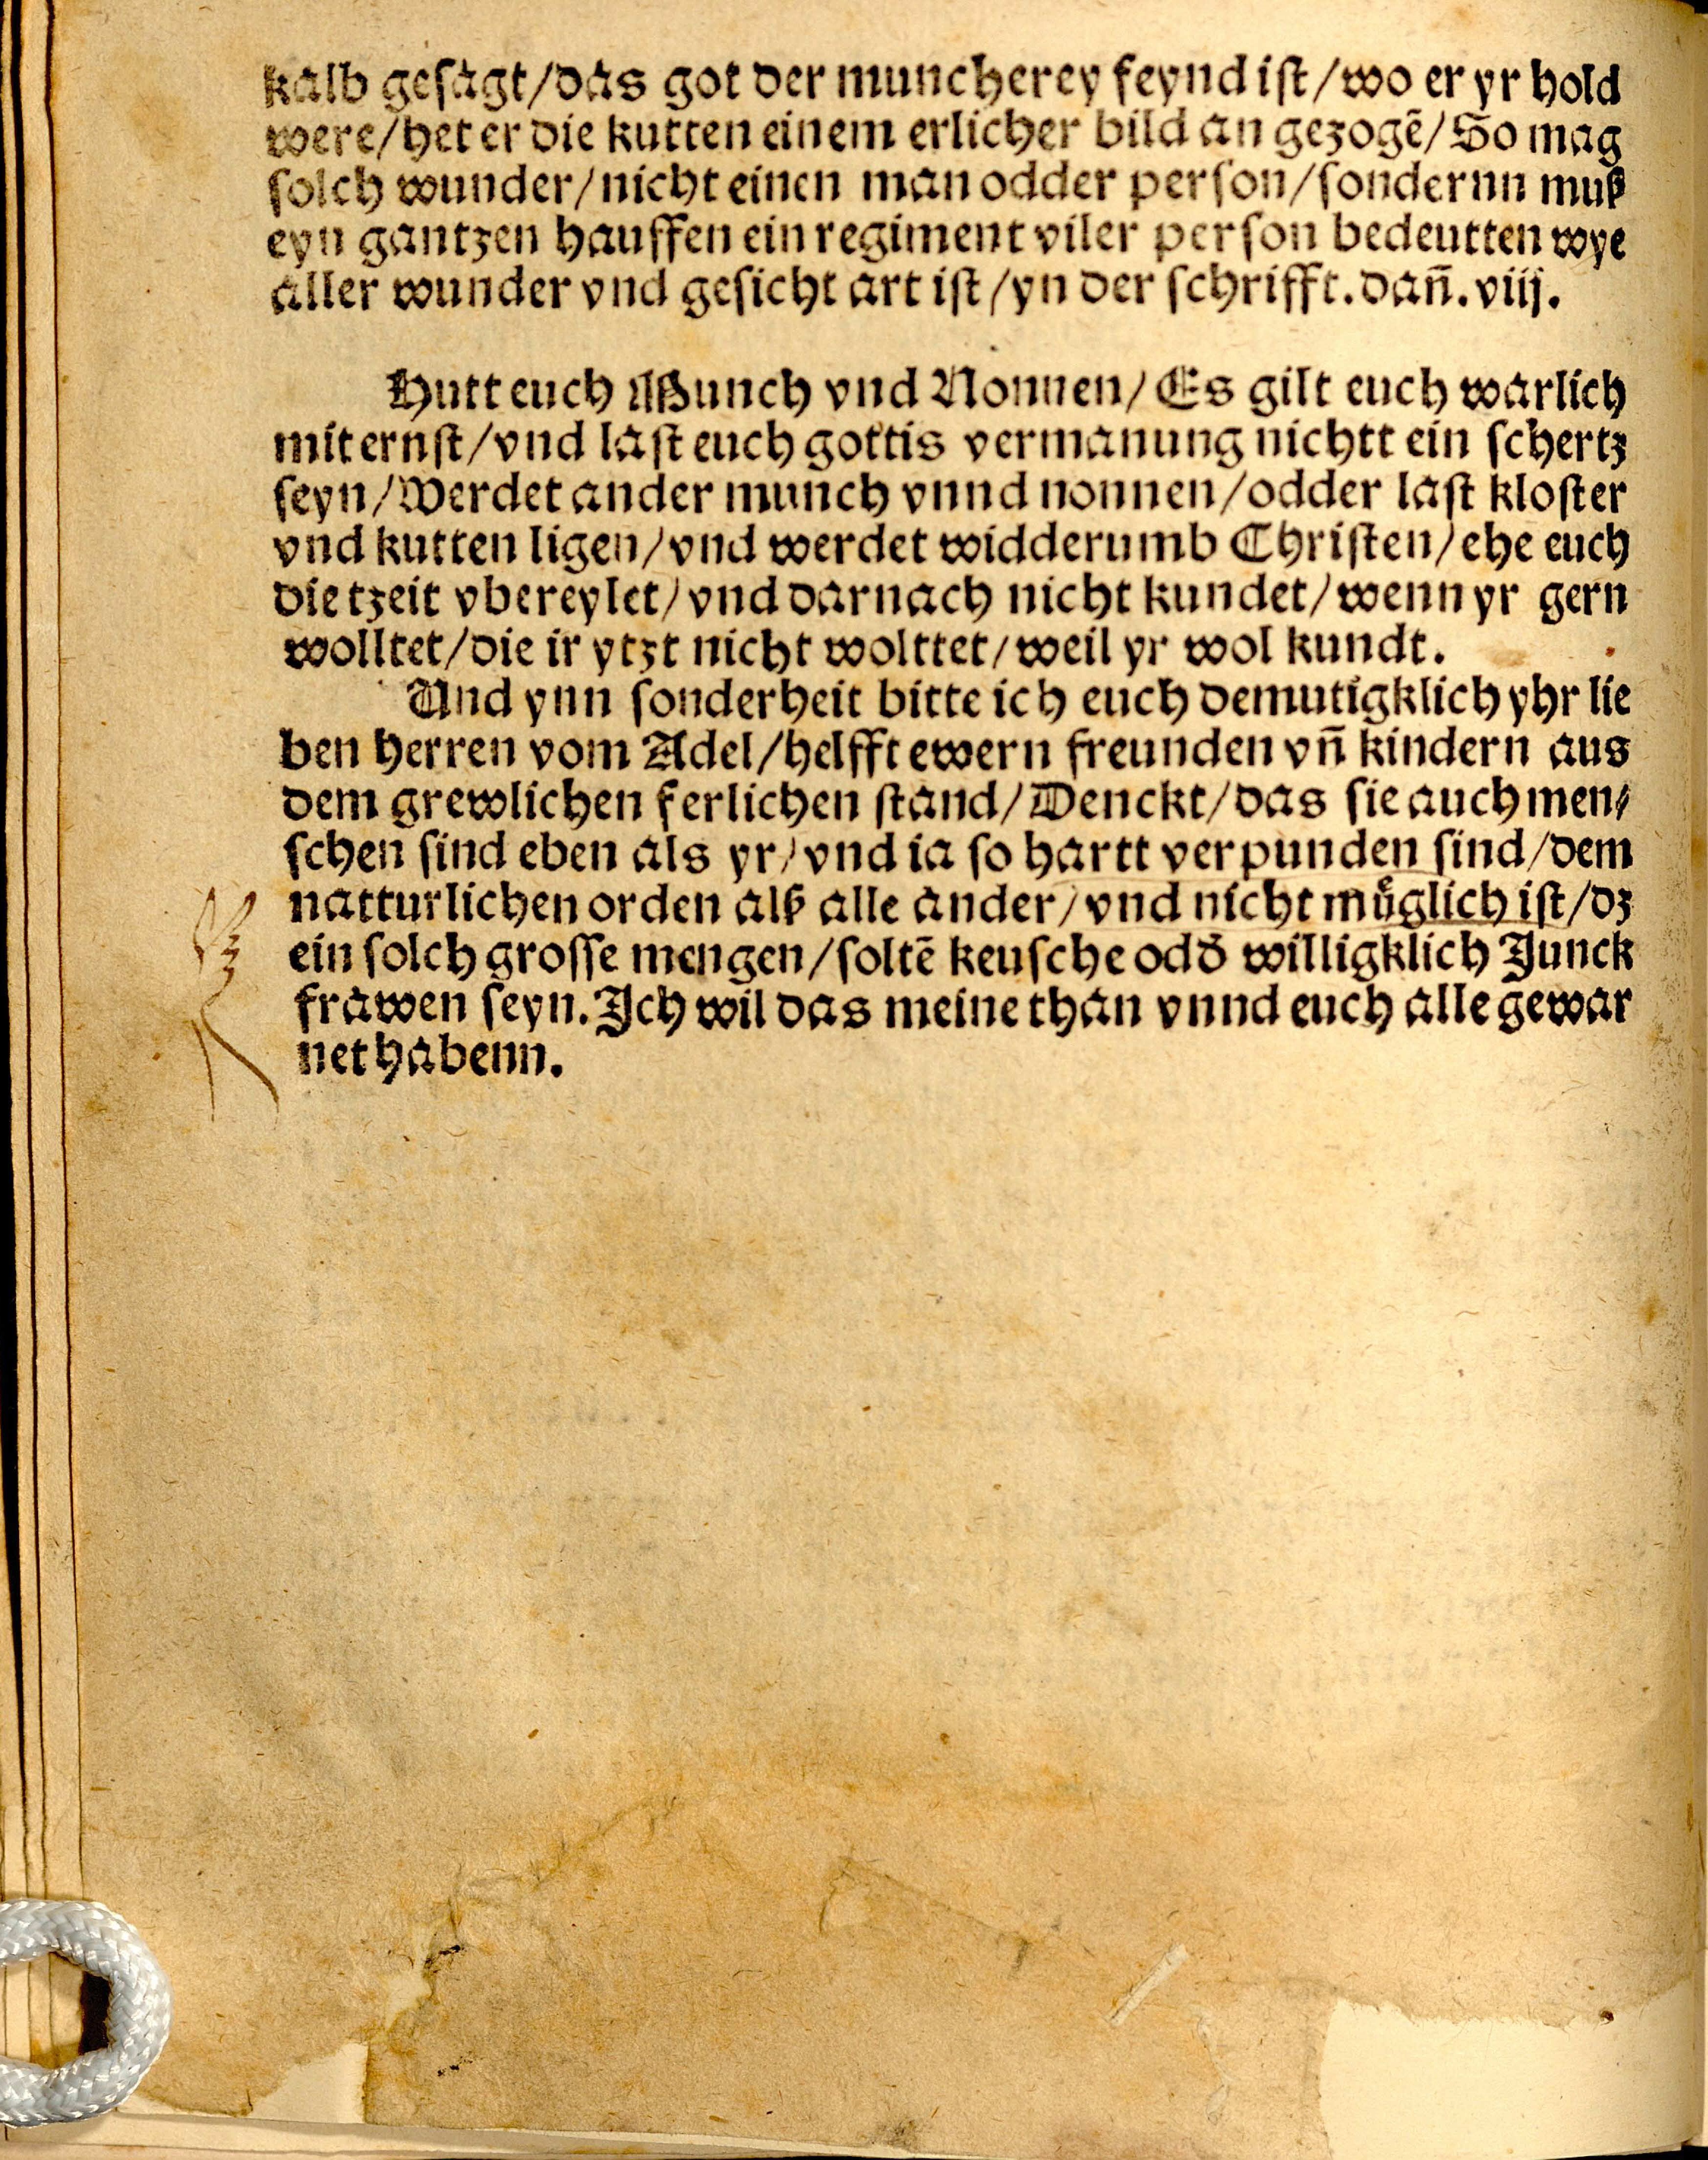 kalb gesagt/das got der muncherey feynd ist/wo er yr hold
were/het er die kutten einem erlicher bild an gezogē/So mag
solch wunder/nicht einen man odder person/sondernn muß
eyn gantzen hauffen ein regiment viler person bedeutten wye
aller wunder vnd gesicht art ist/yn der schrifft.dan̄.viij.
Hutt euch Munch vnd Nonnen/Es gilt euch warlich
mit ernst/vnd last euch gottis vermanung nichtt ein schertz
seyn/Werdet ander munch vnnd nonnen/odder last kloster
vnd kutten ligen/vnd werdet widderumb Christen/ehe euch
die tzeit vbereylet/vnd darnach nicht kundet/wenn yr gern
wolltet/die ir ytzt nicht wolttet/weil yr wol kundt.
Und ynn sonderheit bitte ich euch demutigklich yhr lie
ben herren vom Adel/helfft ewern freunden vn̄ kindern aus
dem grewlichen ferlichen stand/Denckt/das sie auch men⸗
schen sind eben als yr/vnd ia so hartt verpunden sind/dem
natturlichen orden alß alle ander/vnd nicht muͤglich ist/dz
ein solch grosse mengen/soltē keusche odď willigklich Junck
frawen seyn.Ich wil das meine than vnnd euch alle gewar
net habenn.